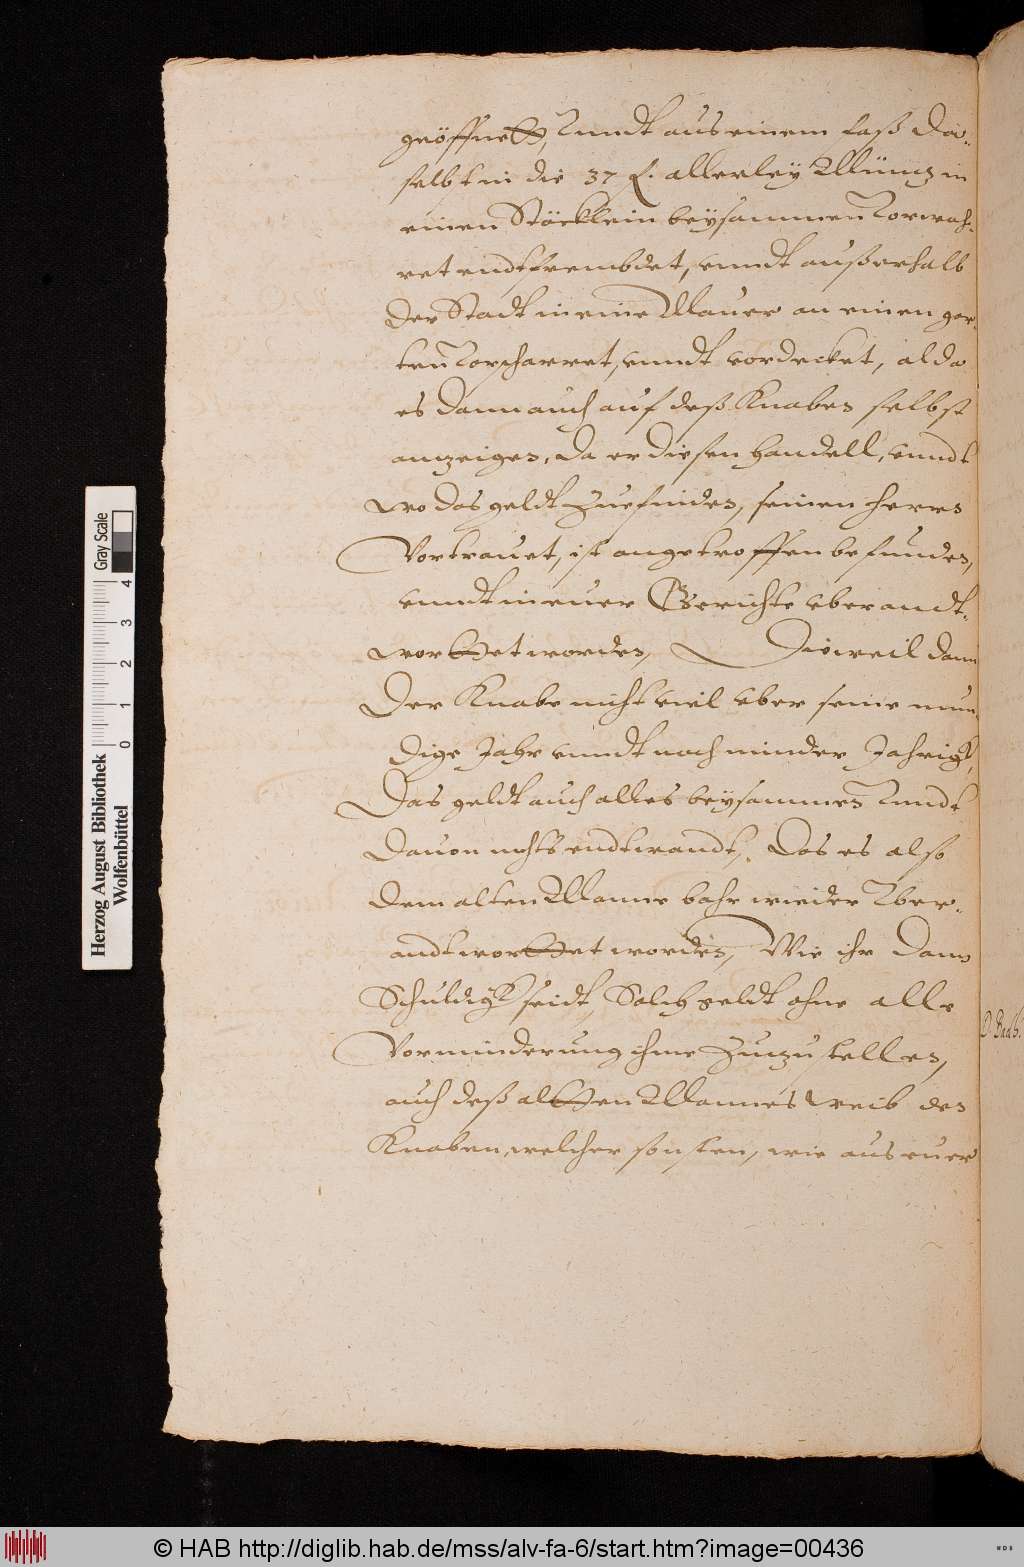 geöffnett, Vnndt aus einem faß da-
selbst in die 37 f. allerley Müntz in
einen Stöcklein beysammen Vorwah-
ret endtfrembdet, vnndt außerhalb
der Stadt in eine Mauer an einen gar-
ten Vorscharret, vnndt vordecket, alda
es dann auch auf deß Knaben selbst
anzeigen, da er diesen handell, vnndt
wo das geldt Zuefinden, seinen herrn
Vortrauet, ist angetroffen befunden,
vnndt in euer Gerichte vberandt-
worttet worden, Dieweil dann
Der Knabe nicht viel vber seine mun-
dige Jahr vnndt noch minder Jahrigk,
Das geldt auch alles beysammen Vnndt
Dauon nichts endtwandt, Das es also
dem alten Manne bahr wieder Vber-
andtworttet worden, Wie ihr dann
Schuldigk seidt, Solch geldt ohne alle
Vorminderung ihme Zuzustellen,
auch deß altten Mannes weib den
Knaben, welcher sonsten, wie aus euer
D. Bad
Herzog August Bibliothek
Wolfenbüttel
0 1 2 3 4
Gray Scale
© HAB http://diglib.hab.de/mss/alv-fa-6/start.htm?image=00436